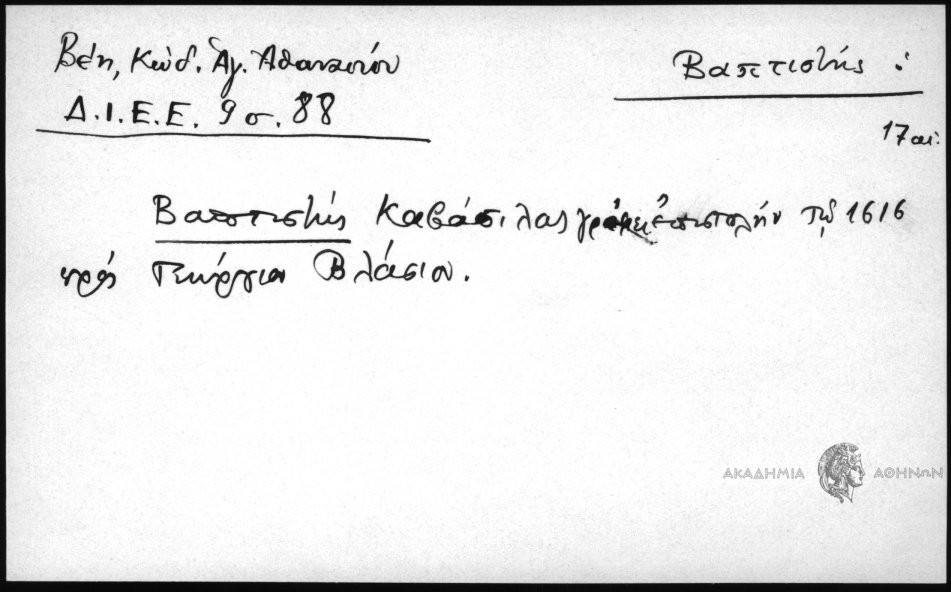 Βέη, Κώδ. Ἁγ. Ἀθανασίου
Δ.Ι.Ε.Ε. 9 σ. 88
Βαπτιστής :
17 αι.
Βαπτιστής Καβάσιλας γράφει ἐπιστολήν τῷ 1616
πρός Γεώργιον Βλάσιον.
ΑΚΑΔΗΜΙΑ ΑΘΗΝΩΝ